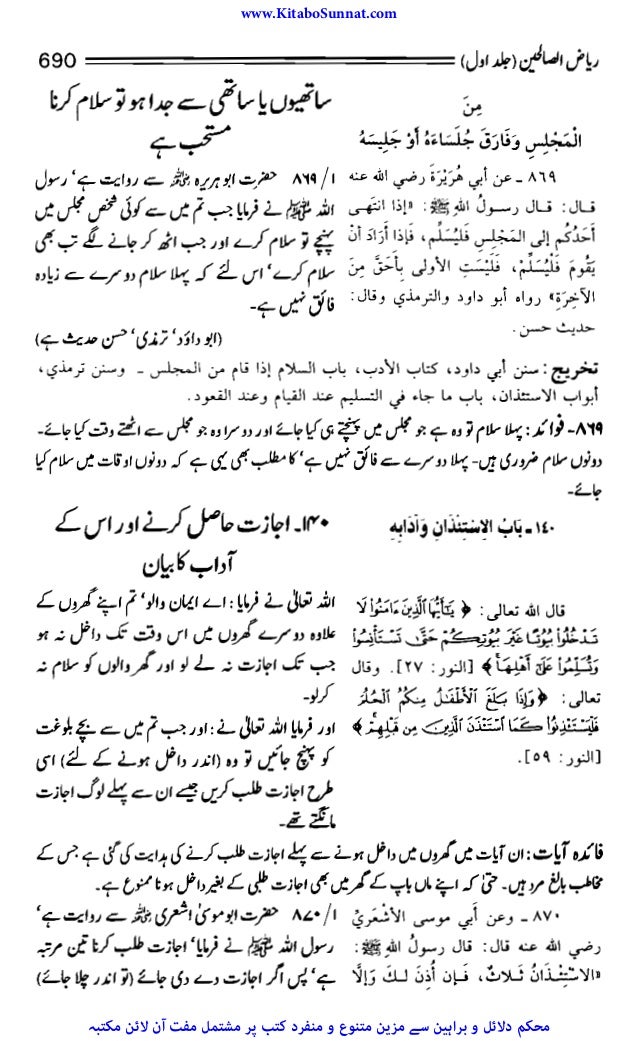 www.KitaboSunnat.com
ریاض الصالحین (جلد اول) 690
مِنَ
الْمَجْلِسِ وَفَارَقَ جُلَسَاءَهُ أَوْ جَلِيسَهُ
ساتھیوں یا ساتھی سے جدا ہو تو سلام کرنا
مستحب ہے
٨٦٩ ـ عن أبي هُرَيْرَةَ رضي الله عنه
قال: قال رسولُ اللهِ ﷺ: «إذا انتَهَى
أَحَدُكُم إلى المَجْلِسِ فَلْيُسَلِّم، فَإذا أَرَادَ أنْ
يَقُومَ فَلْيُسَلِّمْ، فَلَيْسَتِ الأولى بِأَحَقَّ مِنَ
الآخِرَةِ» رواه أبو داود والترمذي وقال:
حديث حسن.
۱/ ۸۶۹ حضرت ابو ہریرہ رضی اللہ عنہ سے روایت ہے‘ رسول
اللہ ﷺ نے فرمایا جب تم میں سے کوئی شخص مجلس میں
پہنچے تو سلام کرے اور جب اٹھ کر جانے لگے تب بھی
سلام کرے‘ اس لئے کہ پہلا سلام دوسرے سے زیادہ
فائق نہیں ہے۔
(ابو داؤد‘ ترمذی‘ حسن حدیث ہے)
تخريج: سنن أبي داود، كتاب الأدب، باب السلام إذا قام من المجلس ـ وسنن ترمذي،
أبواب الاستئذان، باب ما جاء في التسليم عند القيام وعند القعود.
۸۶۹- فوائد: پہلا سلام تو وہ ہے جو مجلس میں پہنچتے ہی کیا جائے اور دوسرا وہ جو مجلس سے اٹھتے وقت کیا جائے۔
دونوں سلام ضروری ہیں- پہلا دوسرے سے فائق نہیں ہے‘ کا مطلب بھی یہی ہے کہ دونوں اوقات میں سلام کیا
جائے۔
١٤٠ ـ بَابُ الِاسْتِئْذَانِ وَآدَابِهِ
۱۴۰۔ اجازت حاصل کرنے اور اس کے
آداب کا بیان
قال الله تعالى: ﴿ يَٰٓأَيُّهَا ٱلَّذِينَ ءَامَنُوا۟ لَا
تَدْخُلُوا۟ بُيُوتًا غَيْرَ بُيُوتِكُمْ حَتَّىٰ تَسْتَأْنِسُوا۟
وَتُسَلِّمُوا۟ عَلَىٰٓ أَهْلِهَا ﴾ [النور: ٢٧]. وقال
تعالى: ﴿ وَإِذَا بَلَغَ ٱلْأَطْفَٰلُ مِنكُمُ ٱلْحُلُمَ
فَلْيَسْتَـْٔذِنُوا۟ كَمَا ٱسْتَـْٔذَنَ ٱلَّذِينَ مِن قَبْلِهِمْ ﴾
[النور: ٥٩].
اللہ تعالیٰ نے فرمایا: اے ایمان والو‘ تم اپنے گھروں کے
علاوہ دوسرے گھروں میں اس وقت تک داخل نہ ہو
جب تک اجازت نہ لے لو اور گھر والوں کو سلام نہ
کرلو۔
اور فرمایا اللہ تعالیٰ نے: اور جب تم میں سے بچے بلوغت
کو پہنچ جائیں تو وہ (اندر داخل ہونے کے لئے) اسی
طرح اجازت طلب کریں جیسے ان سے پہلے لوگ اجازت
مانگتے تھے۔
فائدہ آیات: ان آیات میں گھروں میں داخل ہونے سے پہلے اجازت طلب کرنے کی ہدایت کی گئی ہے جس کے
مخاطب بالغ مرد ہیں۔ حتیٰ کہ اپنے ماں باپ کے گھر میں بھی اجازت طلبی کے بغیر داخل ہونا ممنوع ہے۔
٨٧٠ ـ وعن أبي موسى الأشعَرِيِّ
رضي الله عنه قال: قال رسولُ الله ﷺ:
«الاسْتِئْذَانُ ثَلاثٌ، فَإن أُذِنَ لَكَ وَإلَّا
۱/ ۸۷۰ حضرت ابو موسیٰ اشعری رضی اللہ عنہ سے روایت ہے‘
رسول اللہ ﷺ نے فرمایا‘ اجازت طلب کرنا تین مرتبہ
ہے‘ پس اگر اجازت دے دی جائے (تو اندر چلا جائے)
محکم دلائل و براہین سے مزین متنوع و منفرد کتب پر مشتمل مفت آن لائن مکتبہ